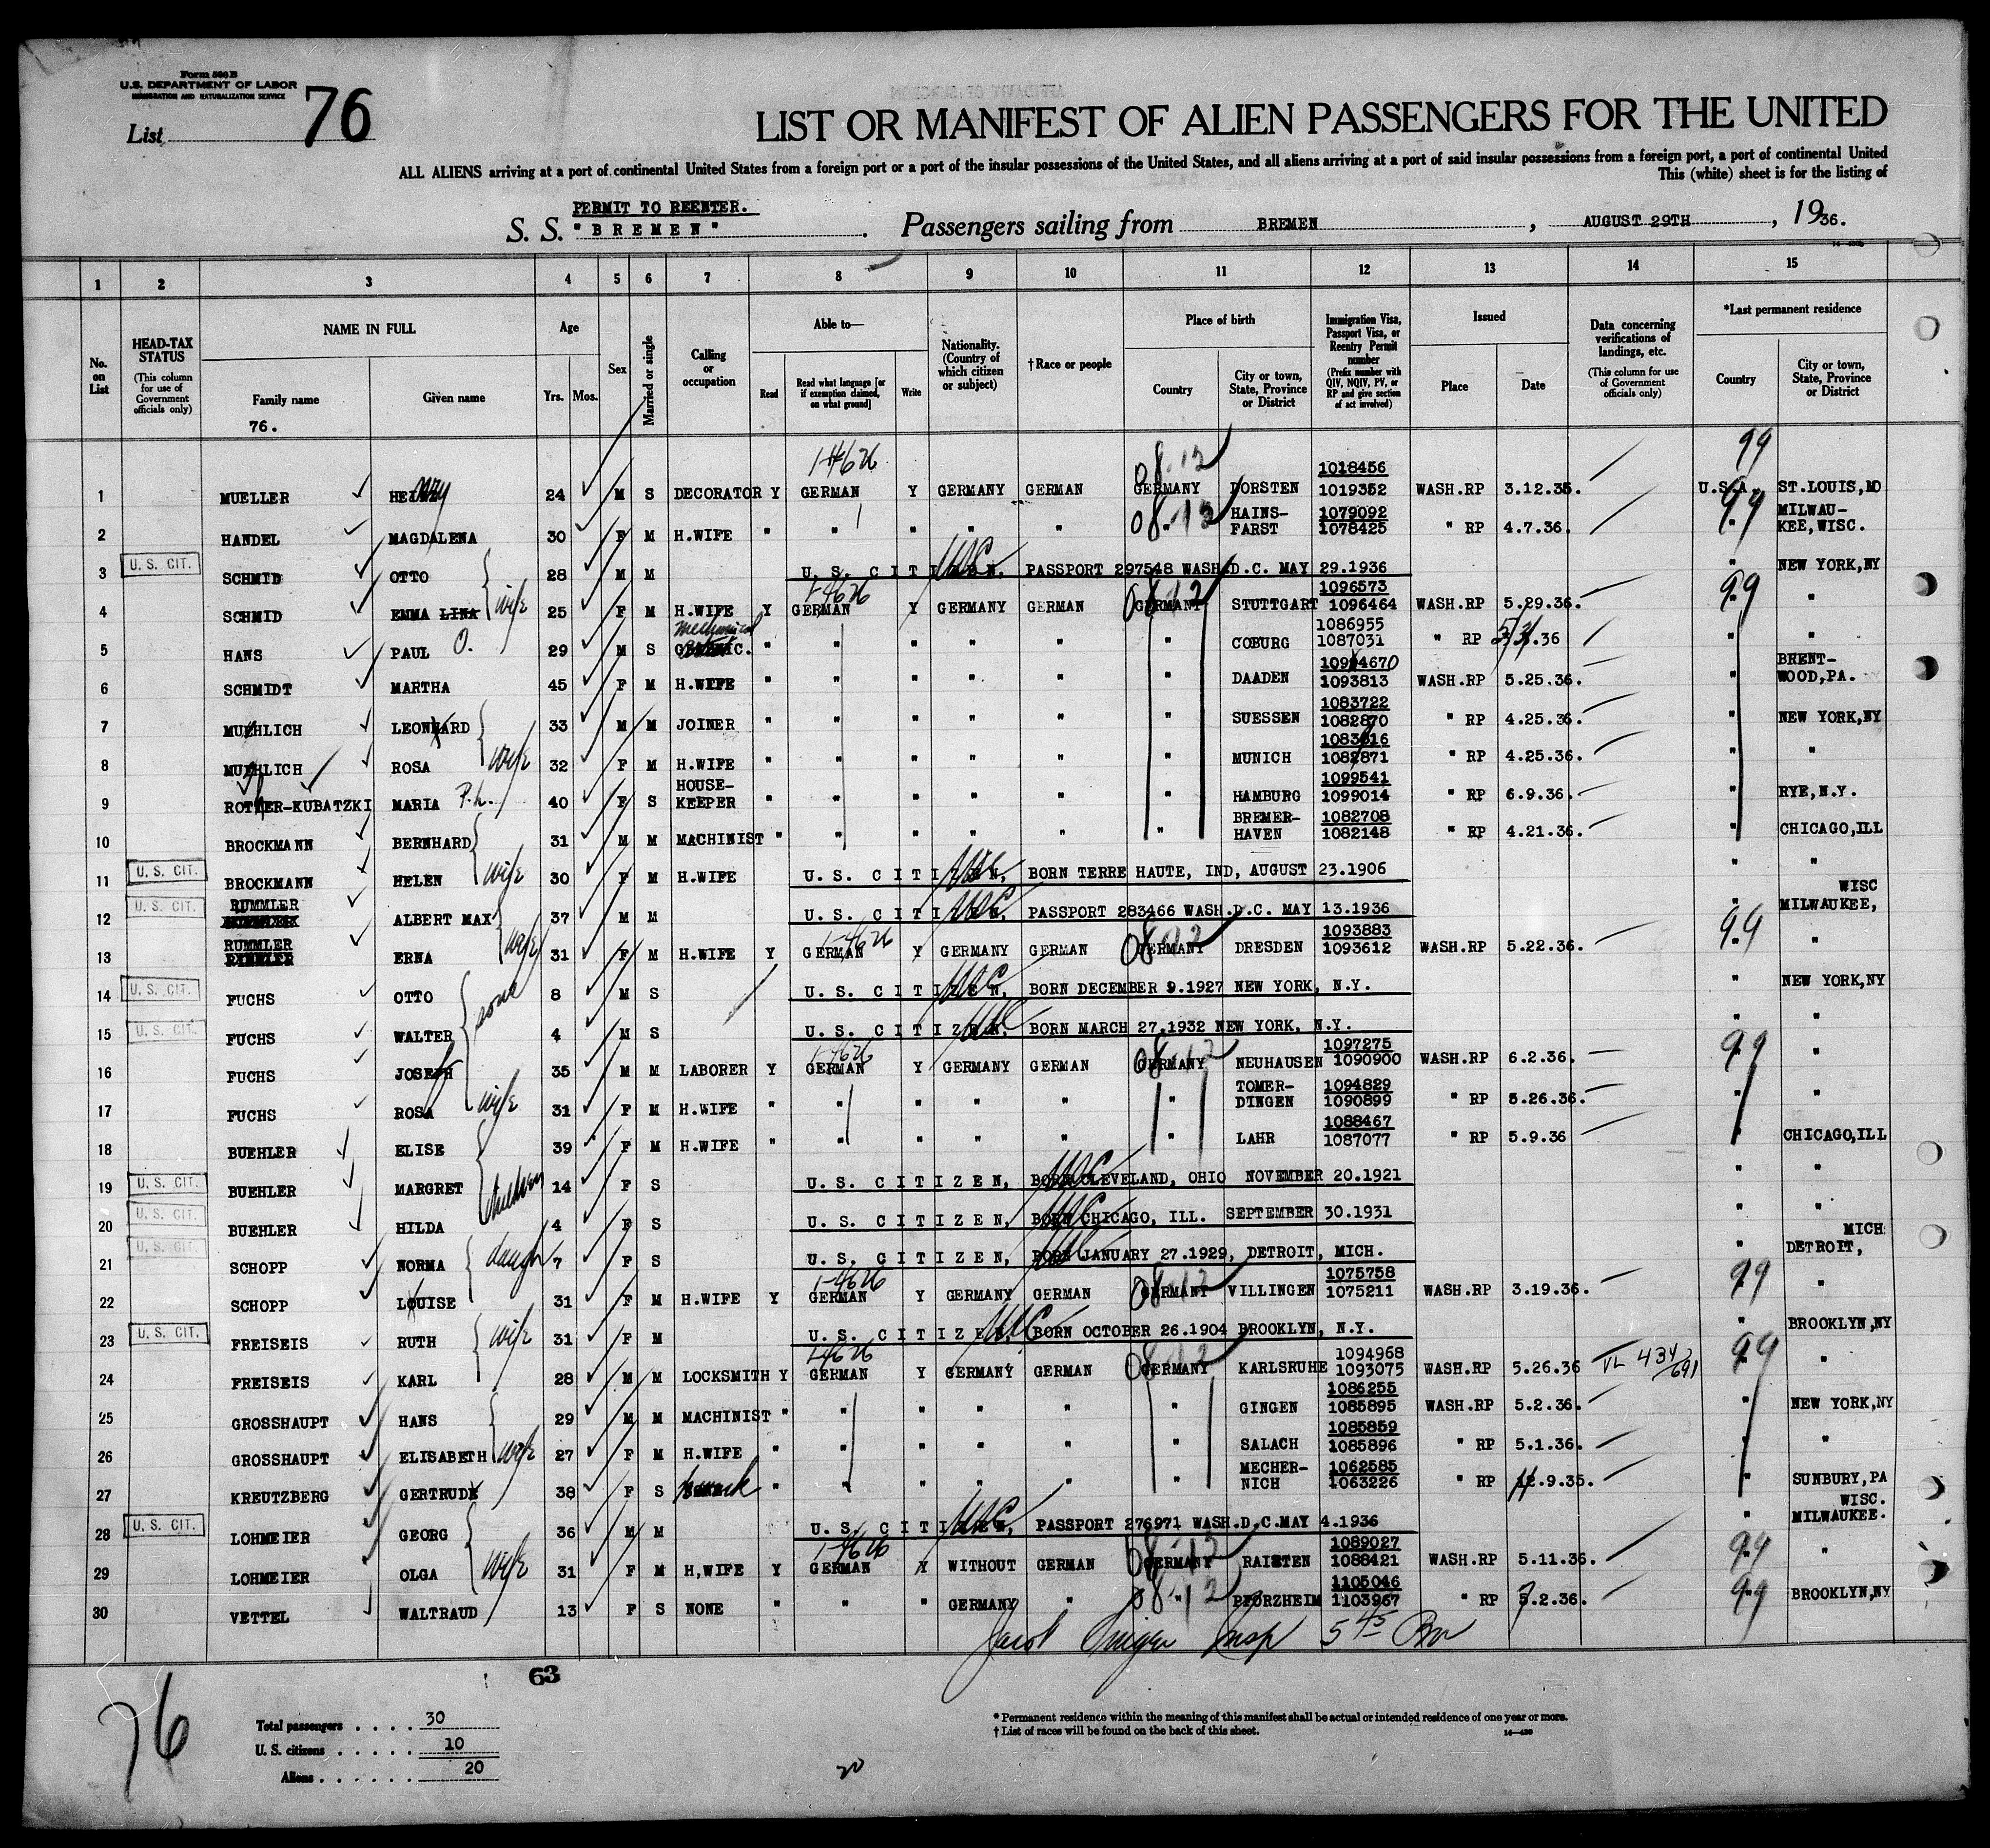 Form 500 B
U.S. DEPARTMENT OF LABOR
IMMIGRATION AND NATURALIZATION SERVICE
List 76
LIST OR MANIFEST OF ALIEN PASSENGERS FOR THE UNITED
ALL ALIENS arriving at a port of continental United States from a foreign port or a port of the insular possessions of the United States, and all aliens arriving at a port of said insular possessions from a foreign port, a port of continental United
This (white) sheet is for the listing of
PERMIT TO REENTER.
S. S. "BREMEN". Passengers sailing from BREMEN, AUGUST 29TH, 1936.
1 2 3 4 5 6 7 8 9 10 11 12 13 14 15
No. on List
HEAD-TAX STATUS (This column for use of Government officials only)
NAME IN FULL Family name Given name
76.
Age Yrs. Mos.
Sex
Married or single
Calling or occupation
Able to— Read Read what language [or if exemption claimed, on what ground] Write
Nationality. (Country of which citizen or subject)
†Race or people
Place of birth Country City or town, State, Province or District
Immigration Visa, Passport Visa, or Reentry Permit number (Prefix number with QIV, NQIV, PV, or RP and give section of act involved)
Issued Place Date
Data concerning verifications of landings, etc. (This column for use of Government officials only)
*Last permanent residence Country City or town, State, Province or District
1-4626 08-12 1018456 99
1 MUELLER 24 M S DECORATOR Y GERMAN Y GERMANY GERMAN GERMANY DORSTEN 1019352 WASH.RP 3.12.35. U.S.A. ST.LOUIS,MO
2 HANDEL MAGDALENA 30 F M H.WIFE " " " " " 08-12 " HAINS-FARST 1079092 1078425 " RP 4.7.36. 99 " MILWAU-KEE,WISC.
3 U. S. CIT. SCHMID OTTO 28 M M U. S. CITIZEN. USC PASSPORT 297548 WASH.D.C. MAY 29.1936 " NEW YORK,NY
4 SCHMID EMMA LINA wife 25 F M H.WIFE Y 1-4626 GERMAN Y GERMANY GERMAN 08-12 GERMANY STUTTGART 1096573 1096464 WASH.RP 5.29.36. 99 " "
5 HANS PAUL O. 29 M S Mechanical " " " " " " COBURG 1086955 1087031 " RP .36 " "
6 SCHMIDT MARTHA 45 F M H.WIFE " " " " " " DAADEN 1093813 WASH.RP 5.25.36. " BRENT-WOOD,PA.
7 MUEHLICH LEONHARD 33 M M JOINER " " " " " " SUESSEN 1083722 1082870 " RP 4.25.36. " NEW YORK,NY
8 MUEHLICH ROSA wife 32 F M H.WIFE " " " " " " MUNICH 1082871 " RP 4.25.36. " "
9 ROTHER-KUBATZKI MARIA P.h. 40 F S HOUSE-KEEPER " " " " " " HAMBURG 1099541 1099014 " RP 6.9.36. " RYE,N.Y.
10 BROCKMANN BERNHARD 31 M M MACHINIST " " " " " " BREMER-HAVEN 1082708 1082148 " RP 4.21.36. " CHICAGO,ILL
11 U. S. CIT. BROCKMANN HELEN wife 30 F M H.WIFE U. S. CITIZEN, USC BORN TERRE HAUTE, IND, AUGUST 23.1906 " "
12 U. S. CIT. RUMMLER ALBERT MAX 37 M M U. S. CITIZEN, USC PASSPORT 283466 WASH.D.C. MAY 13.1936 " WISC MILWAUKEE,
13 RUMMLER ERNA wife 31 F M H.WIFE Y 1-4626 GERMAN Y GERMANY GERMAN 08-12 GERMANY DRESDEN 1093883 1093612 WASH.RP 5.22.36. 99 " "
14 U. S. CIT. FUCHS OTTO 8 M S U. S. CITIZEN, USC BORN DECEMBER 9.1927 NEW YORK, N.Y. " NEW YORK,NY
15 U. S. CIT. FUCHS WALTER sons 4 M S U. S. CITIZEN, USC BORN MARCH 27.1932 NEW YORK, N.Y. " "
16 FUCHS JOSEPH 35 M M LABORER Y 1-4626 GERMAN Y GERMANY GERMAN 08-12 GERMANY NEUHAUSEN 1097275 1090900 WASH.RP 6.2.36. 99 " "
17 FUCHS ROSA wife 31 F M H.WIFE " " " " " " TOMER-DINGEN 1094829 1090899 " RP 5.26.36. " "
18 BUEHLER ELISE 39 F M H.WIFE " " " " " " LAHR 1088467 1087077 " RP 5.9.36 " CHICAGO,ILL
19 U. S. CIT. BUEHLER MARGRET children 14 F S U. S. CITIZEN, USC BORN CLEVELAND, OHIO NOVEMBER 20.1921 " "
20 U. S. CIT. BUEHLER HILDA 4 F S U. S. CITIZEN, USC BORN CHICAGO, ILL. SEPTEMBER 30.1931 " "
21 U. S. CIT. SCHOPP NORMA daugh 7 F S U. S. CITIZEN, USC BORN JANUARY 27.1929, DETROIT, MICH. " MICH DETROIT,
22 SCHOPP LOUISE 31 F M H.WIFE Y 1-4626 GERMAN Y GERMANY GERMAN 08-12 GERMANY VILLINGEN 1075758 1075211 WASH.RP 3.19.36. 99 " "
23 U. S. CIT. FREISEIS RUTH wife 31 F M U. S. CITIZEN, USC BORN OCTOBER 26.1904 BROOKLYN, N.Y. " BROOKLYN,NY
24 FREISEIS KARL 28 M M LOCKSMITH Y 1-4626 GERMAN Y GERMANY GERMAN 08-12 GERMANY KARLSRUHE 1094968 1093075 WASH.RP 5.26.36 VL 434/691 99 " "
25 GROSSHAUPT HANS 29 M M MACHINIST " " " " " " GINGEN 1086255 1085895 WASH.RP 5.2.36. " NEW YORK,NY
26 GROSSHAUPT ELISABETH wife 27 F M H.WIFE " " " " " " SALACH 1085859 1085896 " RP 5.1.36. " "
27 KREUTZBERG GERTRUDE 38 F S " " " " " " MECHER-NICH 1062585 1063226 " RP .9.35. " SUNBURY,PA
28 U. S. CIT. LOHMEIER GEORG 36 M M U. S. CITIZEN, USC PASSPORT 276971 WASH.D.C.MAY 4.1936 " WISC. MILWAUKEE.
29 LOHMEIER OLGA wife 31 F M H,WIFE Y 1-4626 GERMAN Y WITHOUT GERMAN 08-12 GERMANY 1089027 1088421 WASH.RP 5.11.36. 99 " "
30 VETTEL WALTRAUD 13 F S NONE " " " GERMANY " 08-12 " PFORZHEIM 1105046 1103967 " RP .2.36. 99 " BROOKLYN,NY
Jacob Insp 5 45
63
76
Total passengers . . . . 30
U. S. citizens . . . . . 10
Aliens . . . . . . 20
20
* Permanent residence within the meaning of this manifest shall be actual or intended residence of one year or more.
† List of races will be found on the back of this sheet.